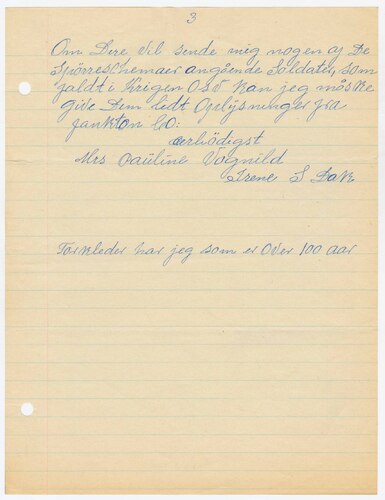 3
Om Dere vil sende mig nogen af De
Spörreschemaer angående Soldater, som
faldt i Krigen OSV Kan jeg måske
give Dem lidt Oplysninger fra
Yankton CO:
ærbödigst
Mrs Pauline Vognild
Irene S Dak
Forkleder har jeg som er over 100 aar